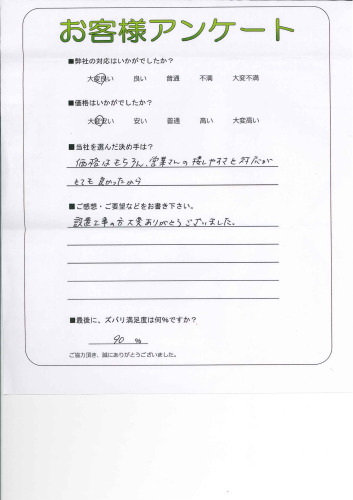 お客様アンケート
■弊社の対応はいかがでしたか？
大変良い 良い 普通 不満 大変不満
■価格はいかがでしたか？
大変安い 安い 普通 高い 大変高い
■当社を選んだ決め手は？
価格はもちろん、営業さんの接しやすさと対応が
とても良かったから
■ご感想・ご要望などをお書き下さい。
設置工事の方大変ありがとうございました。
■最後に、ズバリ満足度は何％ですか？
90 %
ご協力頂き、誠にありがとうございました。